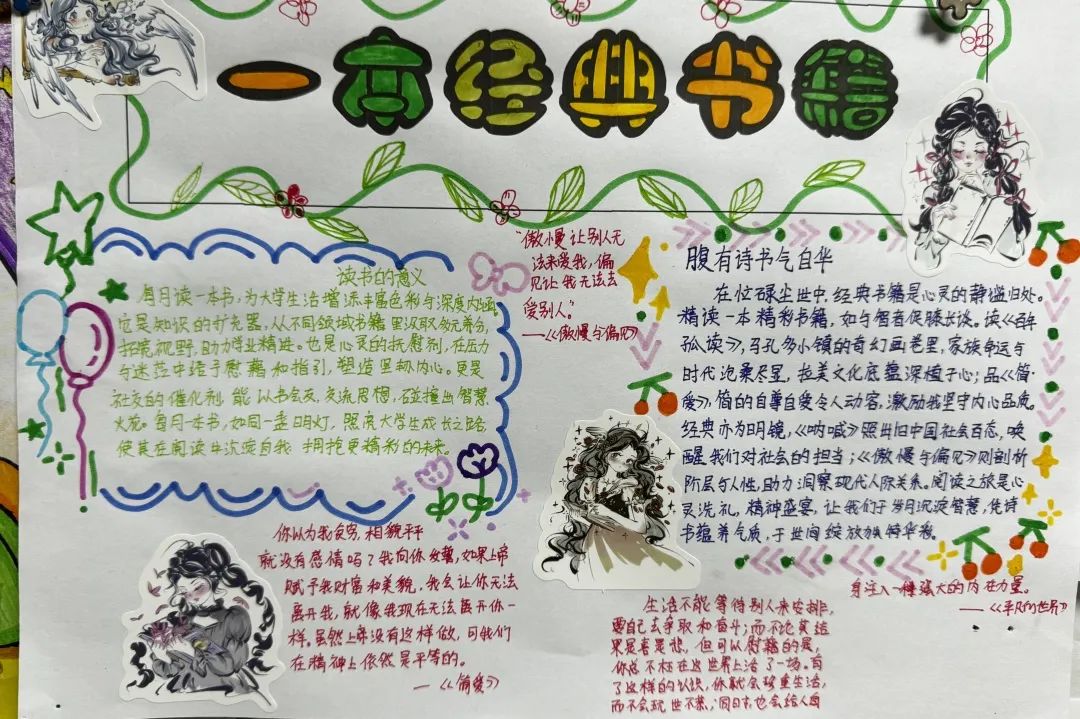 一本经典书籍
读书的意义
每月读一本书，为大学生活增添丰富色彩与深度内涵
它是知识的扩充器，从不同领域书籍里汲取多元养分，
拓宽视野，助力学业精进。也是心灵的抚慰剂，在压力
与迷茫中给予慰藉和指引，塑造坚韧内心。更是
社交的催化剂，能以书会友，交流思想，碰撞出智慧
火花。每月一本书，如同一盏明灯，照亮大学生成长之路，
使其在阅读中沉淀自我，拥抱更精彩的未来。
“傲慢让别人无
法来爱我，偏
见让我无法去
爱别人”
——《傲慢与偏见》
腹有诗书气自华
在忙碌尘世中，经典书籍是心灵的静谧归处。
精读一本精彩书籍，如与智者促膝长谈。读《百年
孤独》，马孔多小镇的奇幻画卷里，家族命运与
时代沧桑尽显，拉美文化底蕴深植于心；品《简·
爱》，简的自尊自爱令人动容，激励我坚守内心品质。
经典亦为明镜，《呐喊》照出旧中国社会百态，唤
醒我们对社会的担当；《傲慢与偏见》则剖析
阶层与人性，助力洞察现代人际关系。阅读之旅是心
灵洗礼，精神盛宴，让我们于岁月沉淀智慧，凭诗
书蕴养气质，于世间绽放独特华彩。
你以为我贫穷，相貌平平
就没有感情吗？我向你发誓，如果上帝
赋予我财富和美貌，我会让你无法
离开我，就像我现在无法离开你一
样。虽然上帝没有这样做，可我们
在精神上依然是平等的。
—《简爱》
生活不能等待别人来安排，
要自己去争取和奋斗；而不论其结
果是喜是悲，但可以慰藉的是，
你总不枉在这世界上活了一场。有
了这样的认识，你就会珍重生活，
而不会玩世不恭，同时，也会给人自
身注入一种强大的内在力量。
——《平凡的世界》